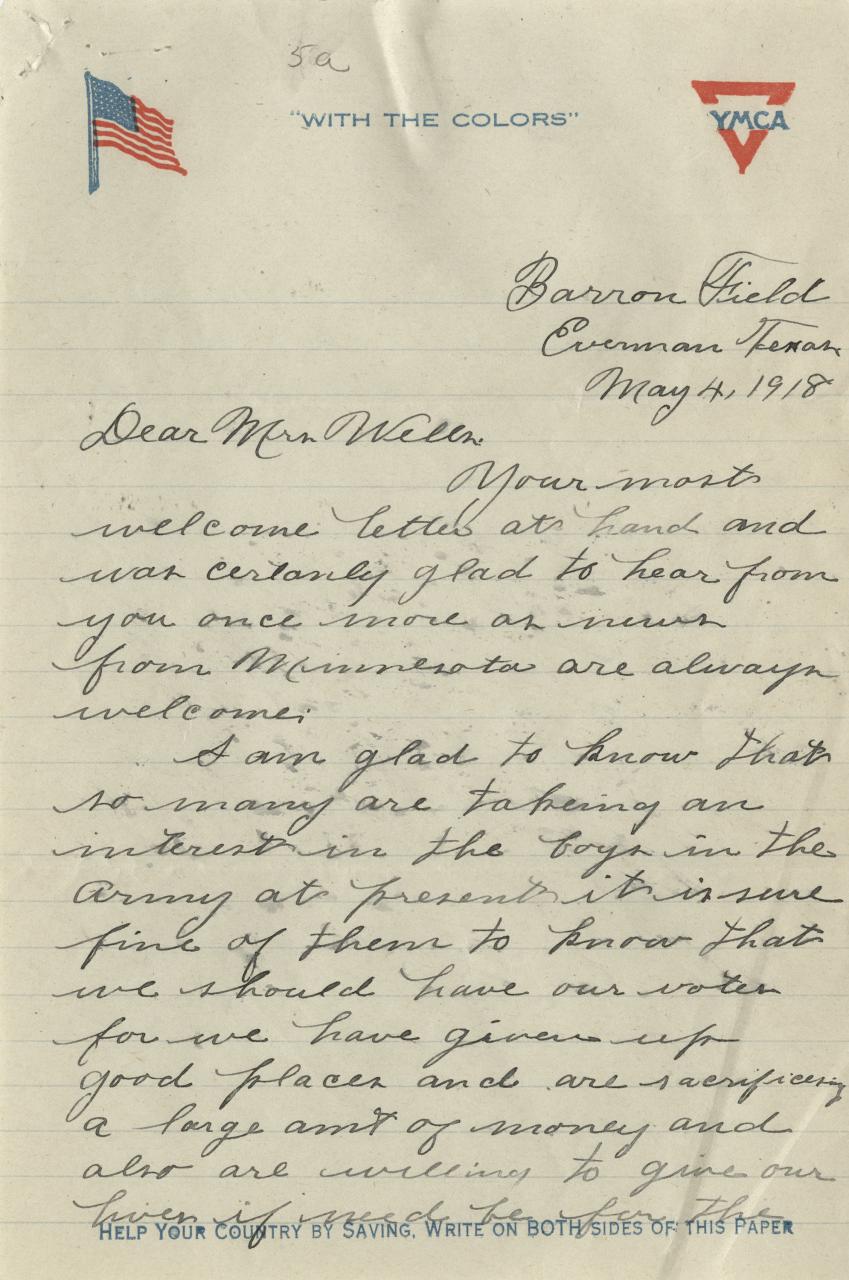 5a
"WITH THE COLORS"
YMCA
Barron Field
Everman Texas
May 4, 1918
Dear Mrs Wells.
Your most
welcome letter at hand and
was certanly glad to hear from
you once more as news
from Minnesota are always
welcome.
I am glad to know that
so many are takeing an
interest in the boys in the
Army at present it is sure
fine of them to know that
we should have our votes
for we have given up
good places and are sacrificeing
a large amt of money and
also are willing to give our
lives if need be for the
HELP YOUR COUNTRY BY SAVING, WRITE ON BOTH SIDES OF THIS PAPER